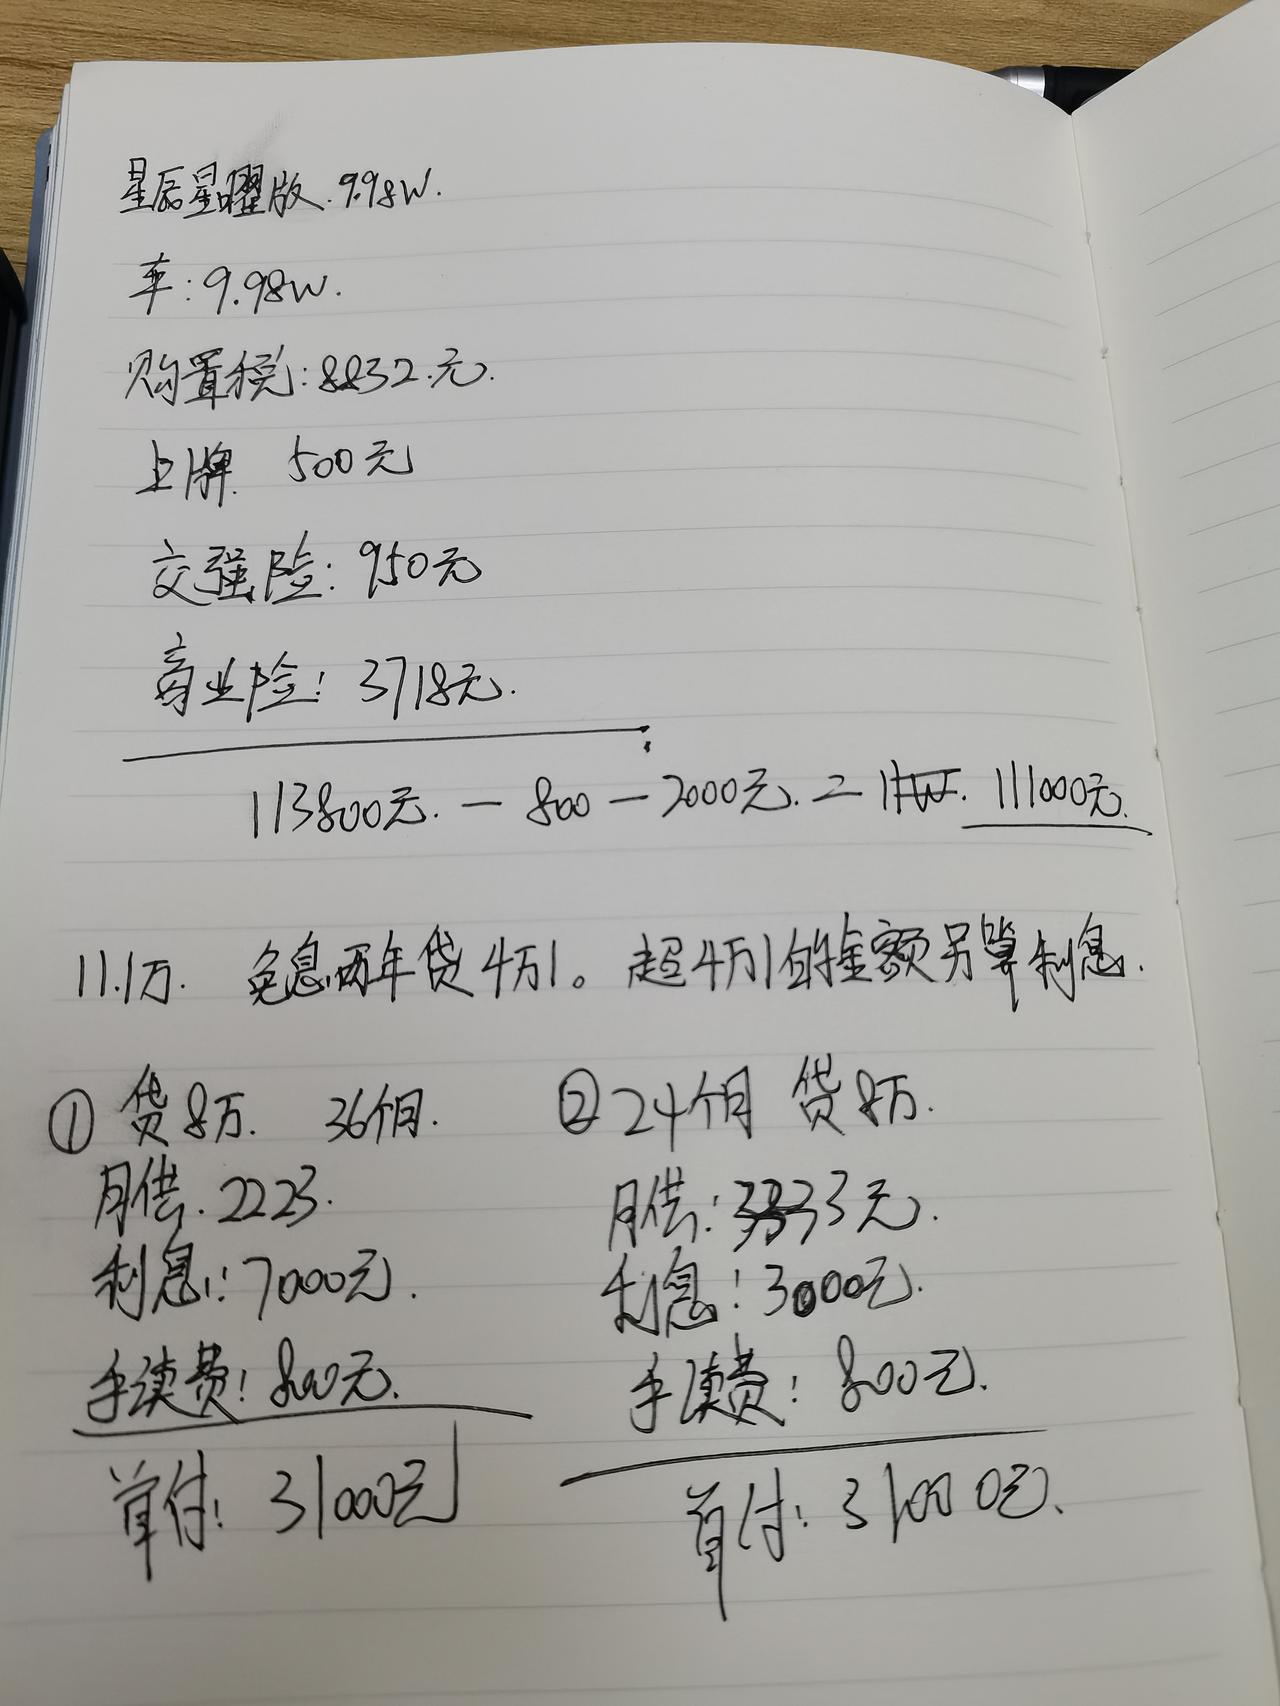 星辰星曜版. 9.98W.
车:9.98W.
购置税:8832.元.
上牌. 500元
交强险:950元
商业险:3718元.
113800元. - 800 - 2000元. = 111000元.
11.1万. 免息两年贷4万1。超4万1的金额另算利息.
① 贷8万. 36个月.
月供.2223.
利息:7000元.
手续费:800元.
首付:31000元
② 24个月 贷8万.
月供:3333元.
利息:3000元.
手续费:800元.
首付:31000元.